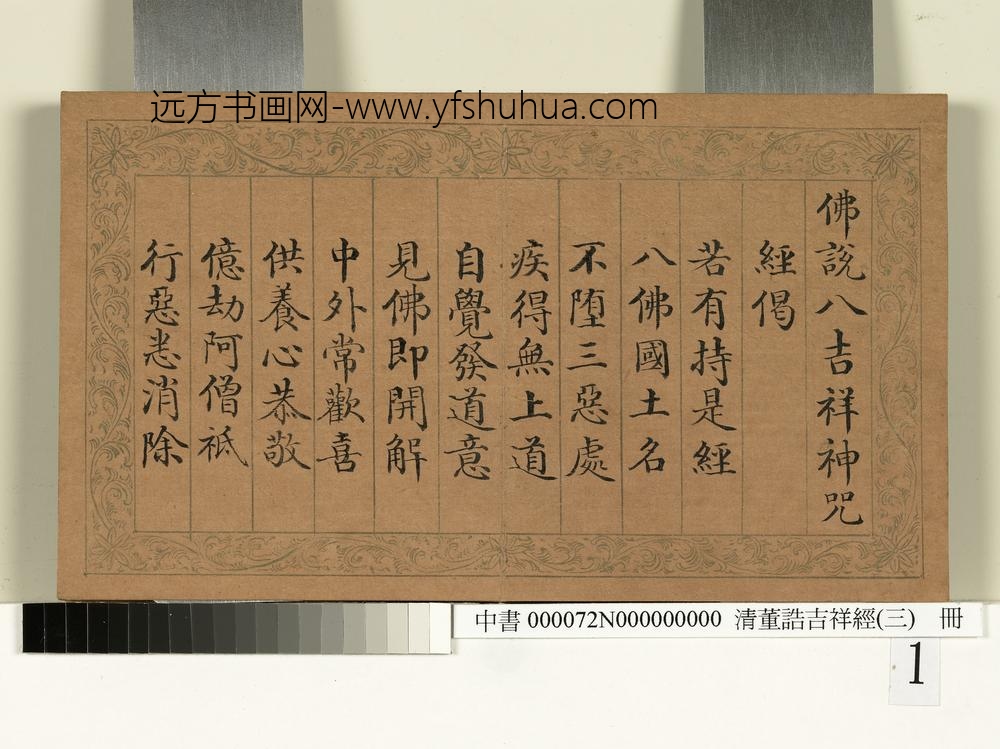 远方书画网-www.yfshuhua.com
佛說八吉祥神咒
經偈
若有持是經
八佛國土名
不墮三惡處
疾得無上道
自覺發道意
見佛即開解
中外常歡喜
供養心恭敬
億劫阿僧祇
行惡悉消除
中書 000072N000000000 清董誥吉祥經(三) 冊
1